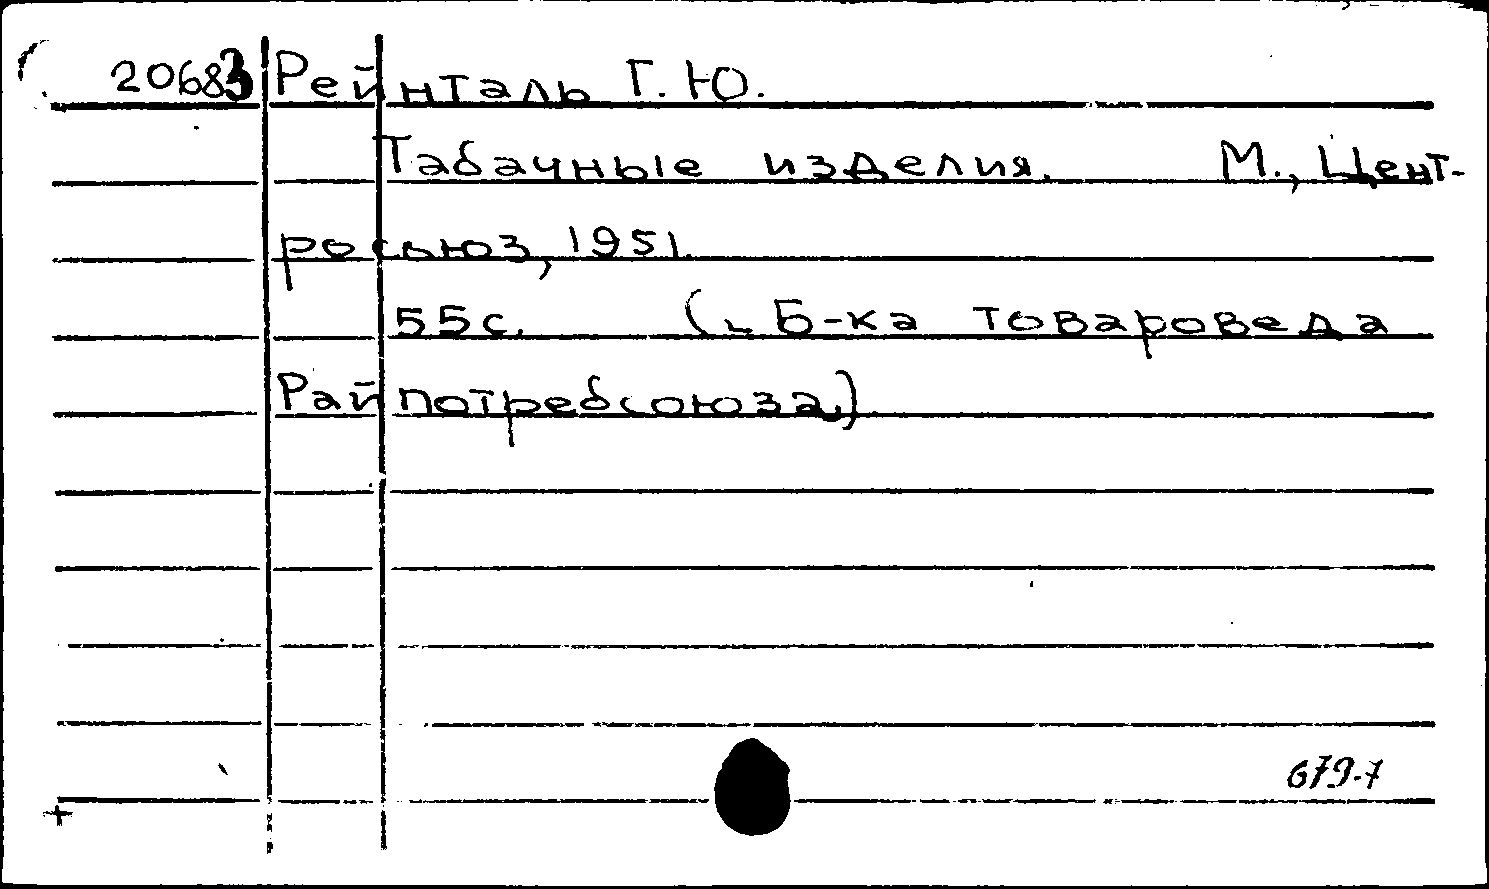 20683 Рейнталь Г. Ю.
Табачные изделия. М., Цент-
росоюз, 1951.
55с. (Б-ка товароведа
Райпотребсоюза.)
679-7
+